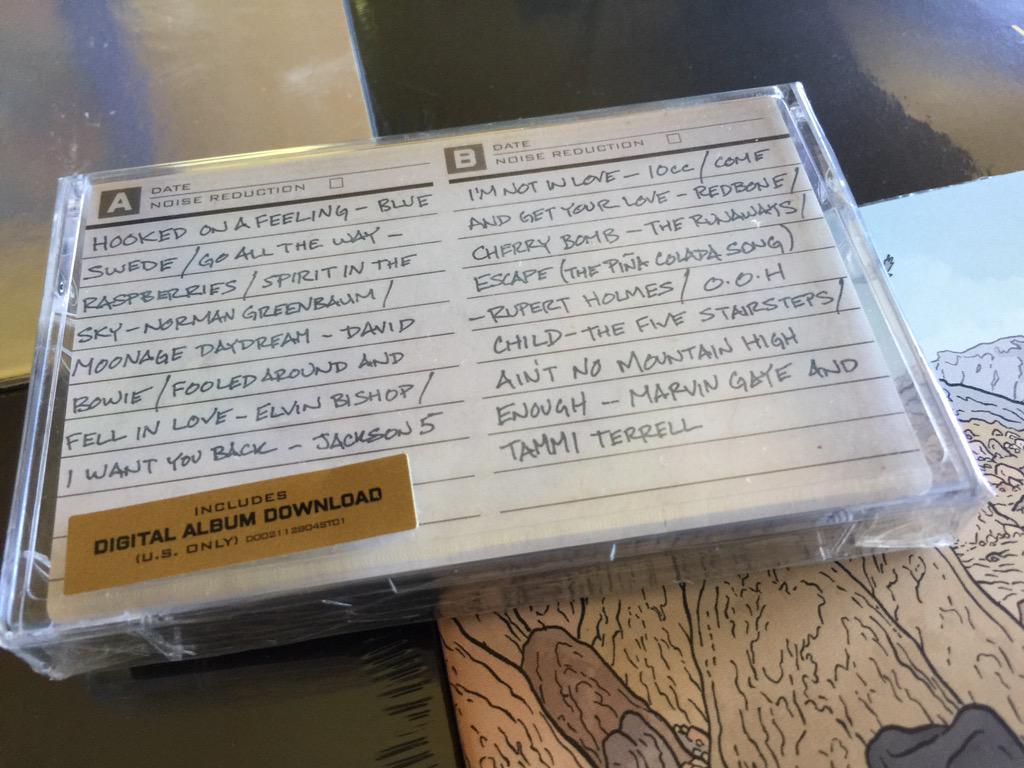 A
DATE
NOISE REDUCTION
HOOKED ON A FEELING - BLUE
SWEDE / GO ALL THE WAY -
RASPBERRIES / SPIRIT IN THE
SKY - NORMAN GREENBAUM /
MOONAGE DAYDREAM - DAVID
BOWIE / FOOLED AROUND AND
FELL IN LOVE - ELVIN BISHOP /
I WANT YOU BACK - JACKSON 5
INCLUDES
DIGITAL ALBUM DOWNLOAD
(U.S. ONLY)
B
DATE
NOISE REDUCTION
I'M NOT IN LOVE - 10cc / COME
AND GET YOUR LOVE - REDBONE /
CHERRY BOMB - THE RUNAWAYS /
ESCAPE (THE PIÑA COLADA SONG)
- RUPERT HOLMES / O.O.H
CHILD - THE FIVE STAIRSTEPS /
AIN'T NO MOUNTAIN HIGH
ENOUGH - MARVIN GAYE AND
TAMMI TERRELL